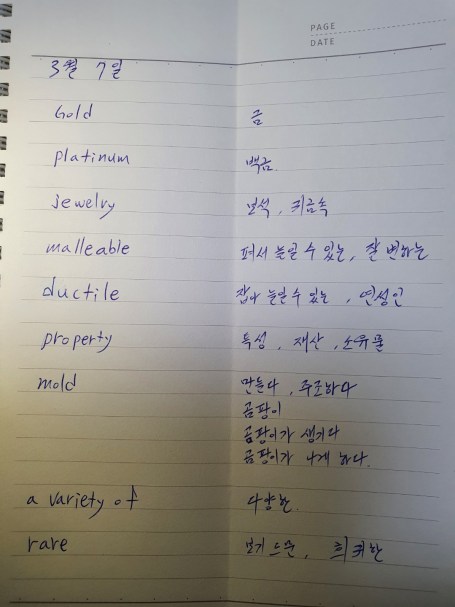 PAGE
DATE
3월 7일
Gold 금
platinum 백금
jewelry 보석, 귀금속
malleable 펴서 늘일 수 있는, 잘 변하는
ductile 잡아 늘일 수 있는, 연성인
property 특성, 재산, 소유물
mold 만들다, 주조하다
곰팡이
곰팡이가 생기다
곰팡이가 나게 하다.
a variety of 다양한
rare 보기 드문, 희귀한